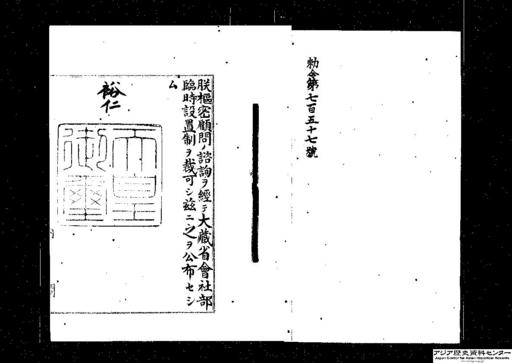 勅令第七百五十七號
朕樞密顧問ノ諮詢ヲ經テ大藏省會社部
臨時設置制ヲ裁可シ茲ニ之ヲ公布セシ
ム
裕仁
天皇
御璽
アジア歴史資料センター
Japan Center for Asian Historical Records